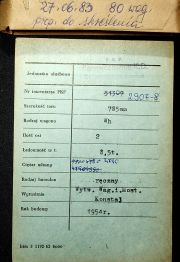 27.06.83 80 wag.
prop. do skreślenia
P.K.P.
Jednostka służbowa
Nr inwentarza PKP 2907-8
Szerokość toru 785mm
Rodzaj wagonu Wh
Ilość osi 2
Ładowność w t. 8,5t.
Ciężar własny
Rodzaj hamulca ręczny
Wytwórnia Wytw. Wag.i.Most.
Konstal
Rok budowy 1954r.